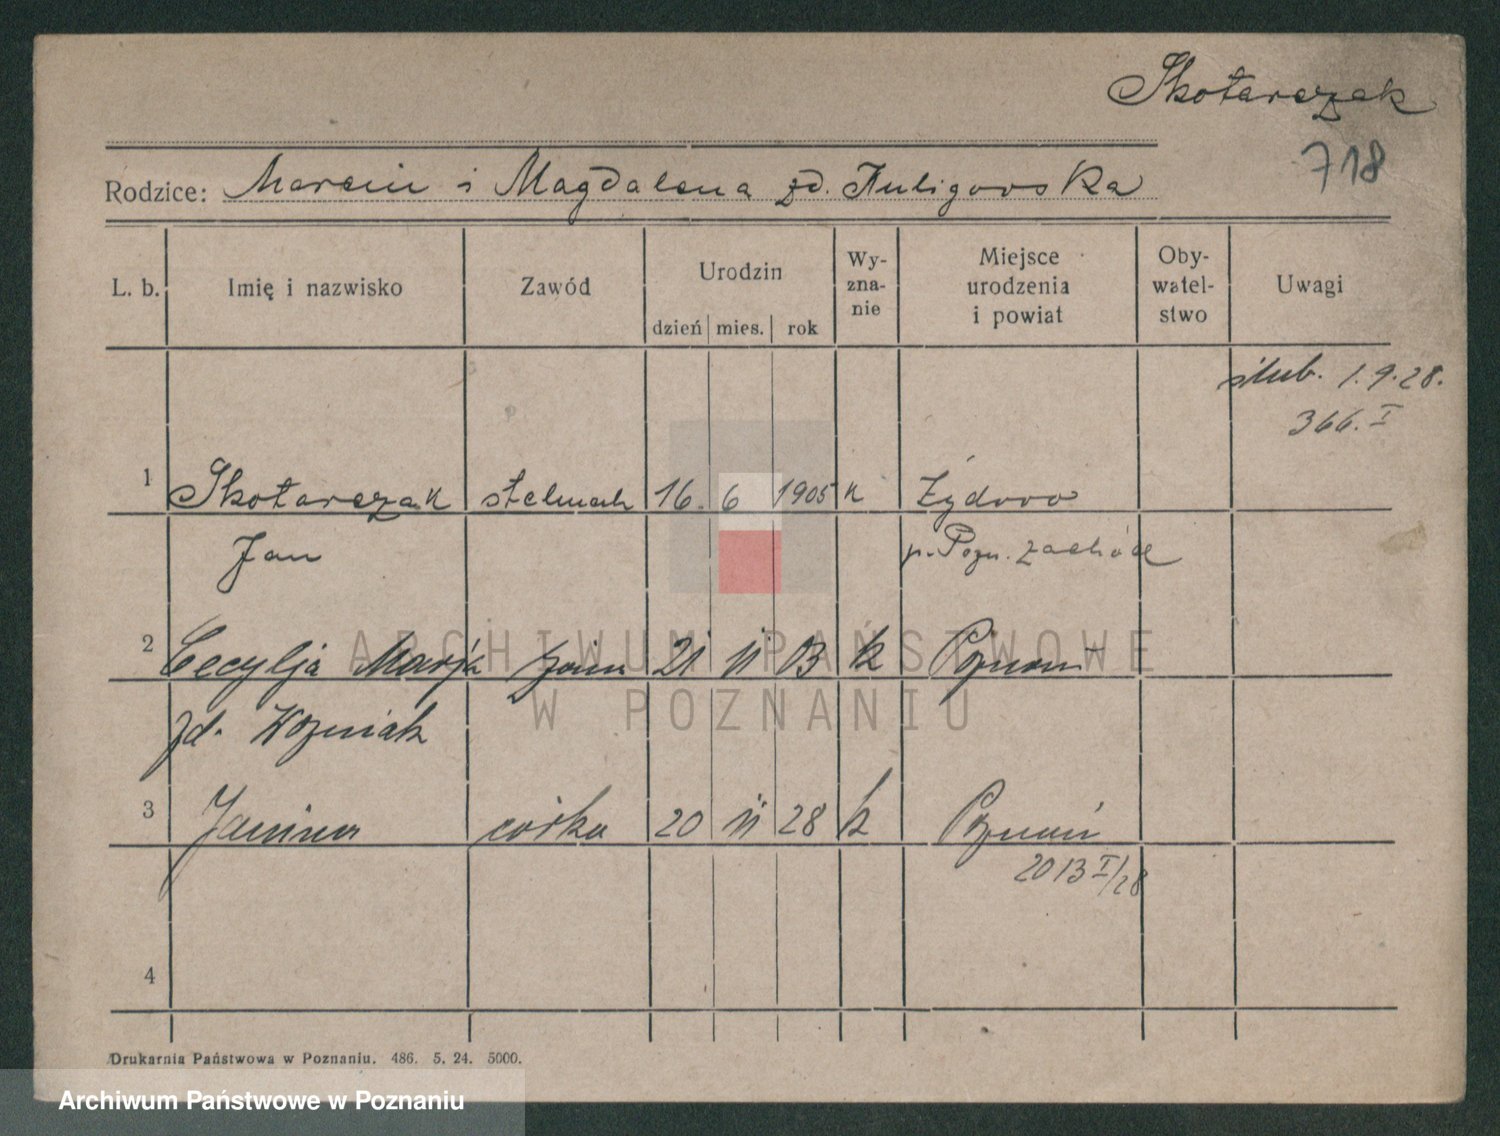 Skotarczak
718
Rodzice: Marcin i Magdalena zd. Kuligowska
L. b. Imię i nazwisko Zawód Urodzin dzień mies. rok Wy-zna-nie Miejsce urodzenia i powiat Oby-watel-stwo Uwagi
ślub. 1.9.28.
366. I
1 Skotarczak stelmach 16. 6 1905 k Żydowo
Jan p. Pozn. zachód
2 Cecylja Marja żona 21 11 03 k Poznań
zd. Woźniak
3 Janina córka 20 11 28 k Poznań
2013 I/28
4
Drukarnia Państwowa w Poznaniu. 486. 5. 24. 5000.
ARCHIWUM PAŃSTWOWE
W POZNANIU
Archiwum Państwowe w Poznaniu